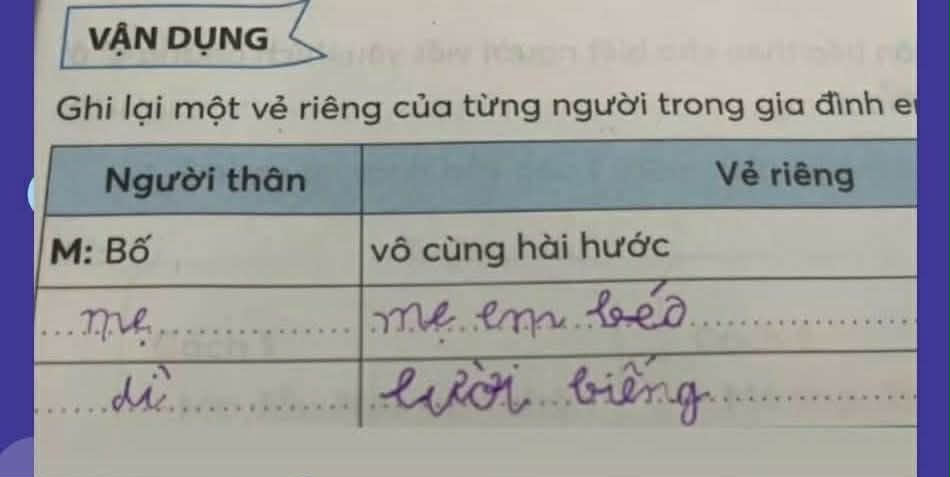 VẬN DỤNG
Ghi lại một vẻ riêng của từng người trong gia đình e
Người thân Vẻ riêng
M: Bố vô cùng hài hước
mẹ mẹ em béo
dì lười biếng